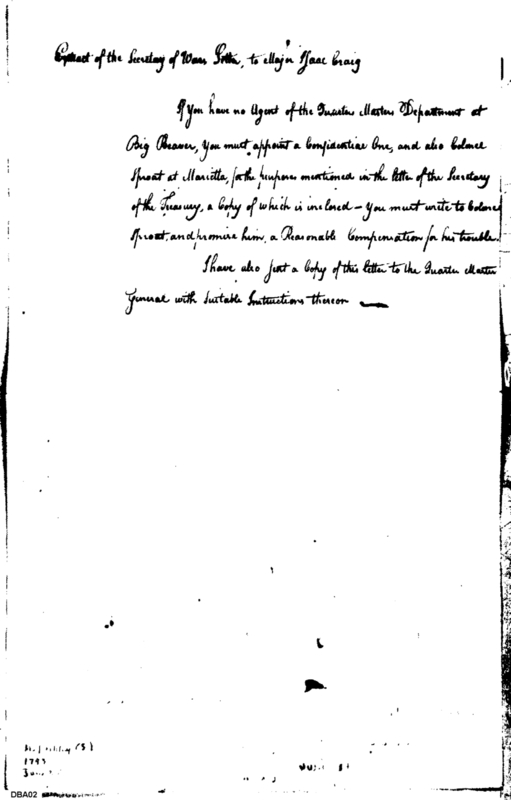 Extract of the Secretary of Wars Letter, to Major Isaac Craig
If you have no Agent of the Quarter Masters Department at
Big Beaver, you must appoint a Confidential One, and also Colonel
Sproat at Marietta, for the purposes mentioned in the letter of the Secretary
of the Treasury, a Copy of which is inclosed — You must write to Colonel
Sproat, and promise him, a Reasonable Compensation for his trouble.
I have also sent a Copy of this letter to the Quarter Master
General with Suitable Instructions thereon —
(S)
1793
DBA02